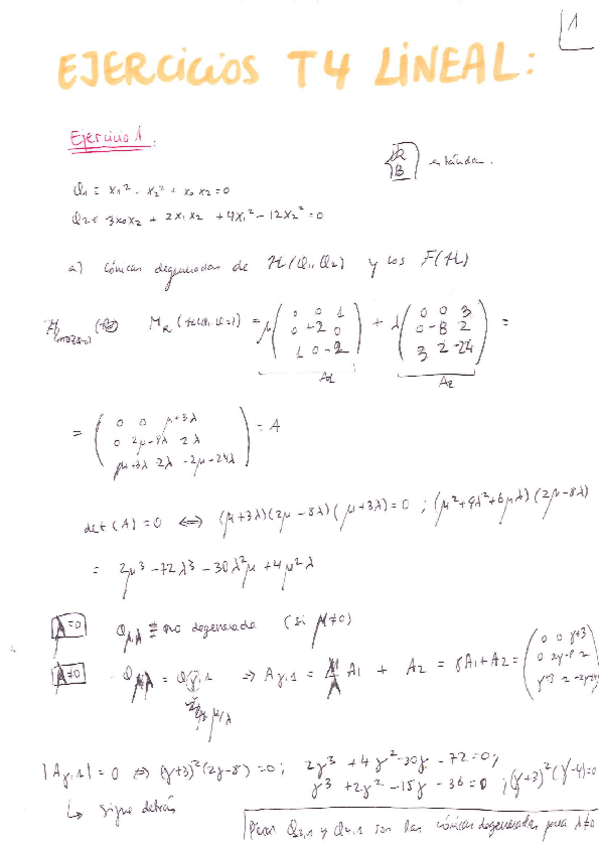 1
EJERCICIOS T4 LINEAL:
Ejercicio 1:
R
B
estándar.
Q1 ≡ x1² - x2² + x0 x2 = 0
Q2 ≡ 3x0x2 + 2x1x2 + 4x1² - 12x2² = 0
a) cónicas degeneradas de H(Q1,Q2) y los F(H)
MR (H(Q1,Q2)) = μ ( 0 0 1 ) + λ ( 0 0 3 ) =
0 +2 0 0 -8 2
1 0 -2 3 2 -24
A1 A2
= ( 0 0 μ+3λ ) = A
0 2μ-8λ 2λ
μ+3λ 2λ -2μ-24λ
det(A)=0 ⟺ (μ+3λ)(2μ-8λ)(μ+3λ)=0 ; (μ²+9λ²+6μλ)(2μ-8λ)
= 2μ³ - 72λ³ - 30λ²μ + 4μ²λ
λ=0 Qμ,λ ≡ no degenerada (si μ≠0)
λ≠0 Qμ,λ = Qγ,1 ⇒ Aγ,1 = μ/λ A1 + A2 = γA1+A2 = ( 0 0 γ+3 )
0 2γ-8 2
γ+3 2 -2γ-24
μ/λ
|Aγ,1| = 0 ⟺ (γ+3)²(2γ-8)=0; 2γ³ + 4γ² - 30γ - 72 = 0;
γ³ + 2γ² - 15γ - 36 = 0 ; (γ+3)²(γ-4)=0
↳ sigue detrás
Q-3,1 y Q4,1 son las cónicas degeneradas para λ≠0